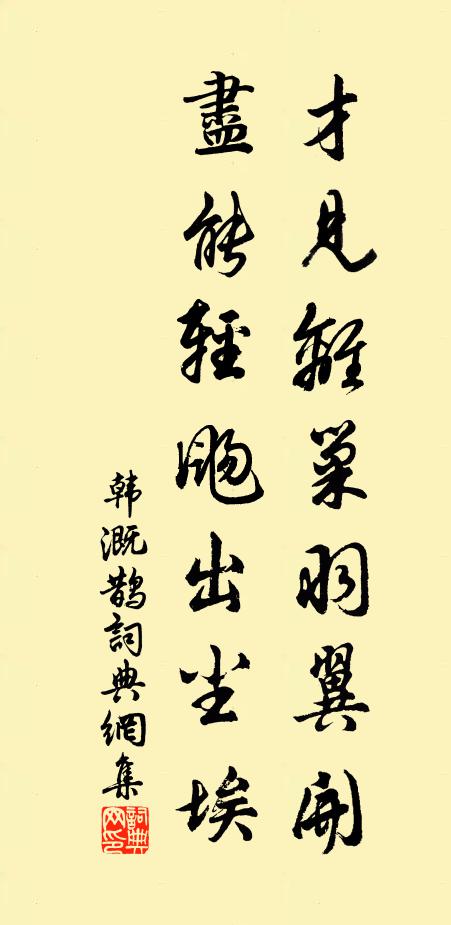 才見離巢羽翼開
盡能輕颺出尘埃
韩溉鵲詞典網集
詞典網印